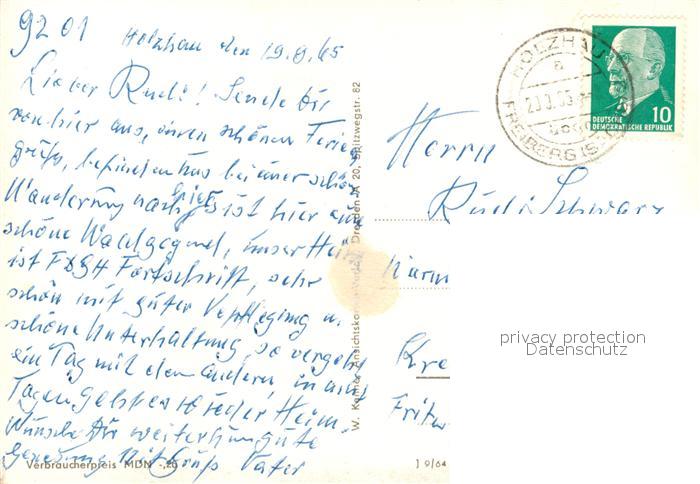 9201
Holzhau den 19.8.65
Lieber Rudi! Sende Dir
von hier aus, einen schönen Ferien
gruß, befinden uns bei einer schön
Wanderung nach es ist hier eine
schöne Waldgegend, unser Heim
ist FDGH Fortschritt, sehr
schön mit guter Verpflegung u.
schöne Unterhaltung, so vergeht
ein Tag mit dem andern, in
Tagen geht es wieder Heim.
Wünsche Dir weiterhin gute
Genesung Mit Gruß Vater
Verbraucherpreis MDN -,20
W. Kanter, Ansichtskarten-Verlag, Dresden A 20, Spitzwegstr. 82
J 9/64
HOLZHAU
a
FREIBERG (SA
10
DEUTSCHE
DEMOKRATISCHE REPUBLIK
Herrn
Rudi Schwarz
Kre
Fritz
privacy protection
Datenschutz